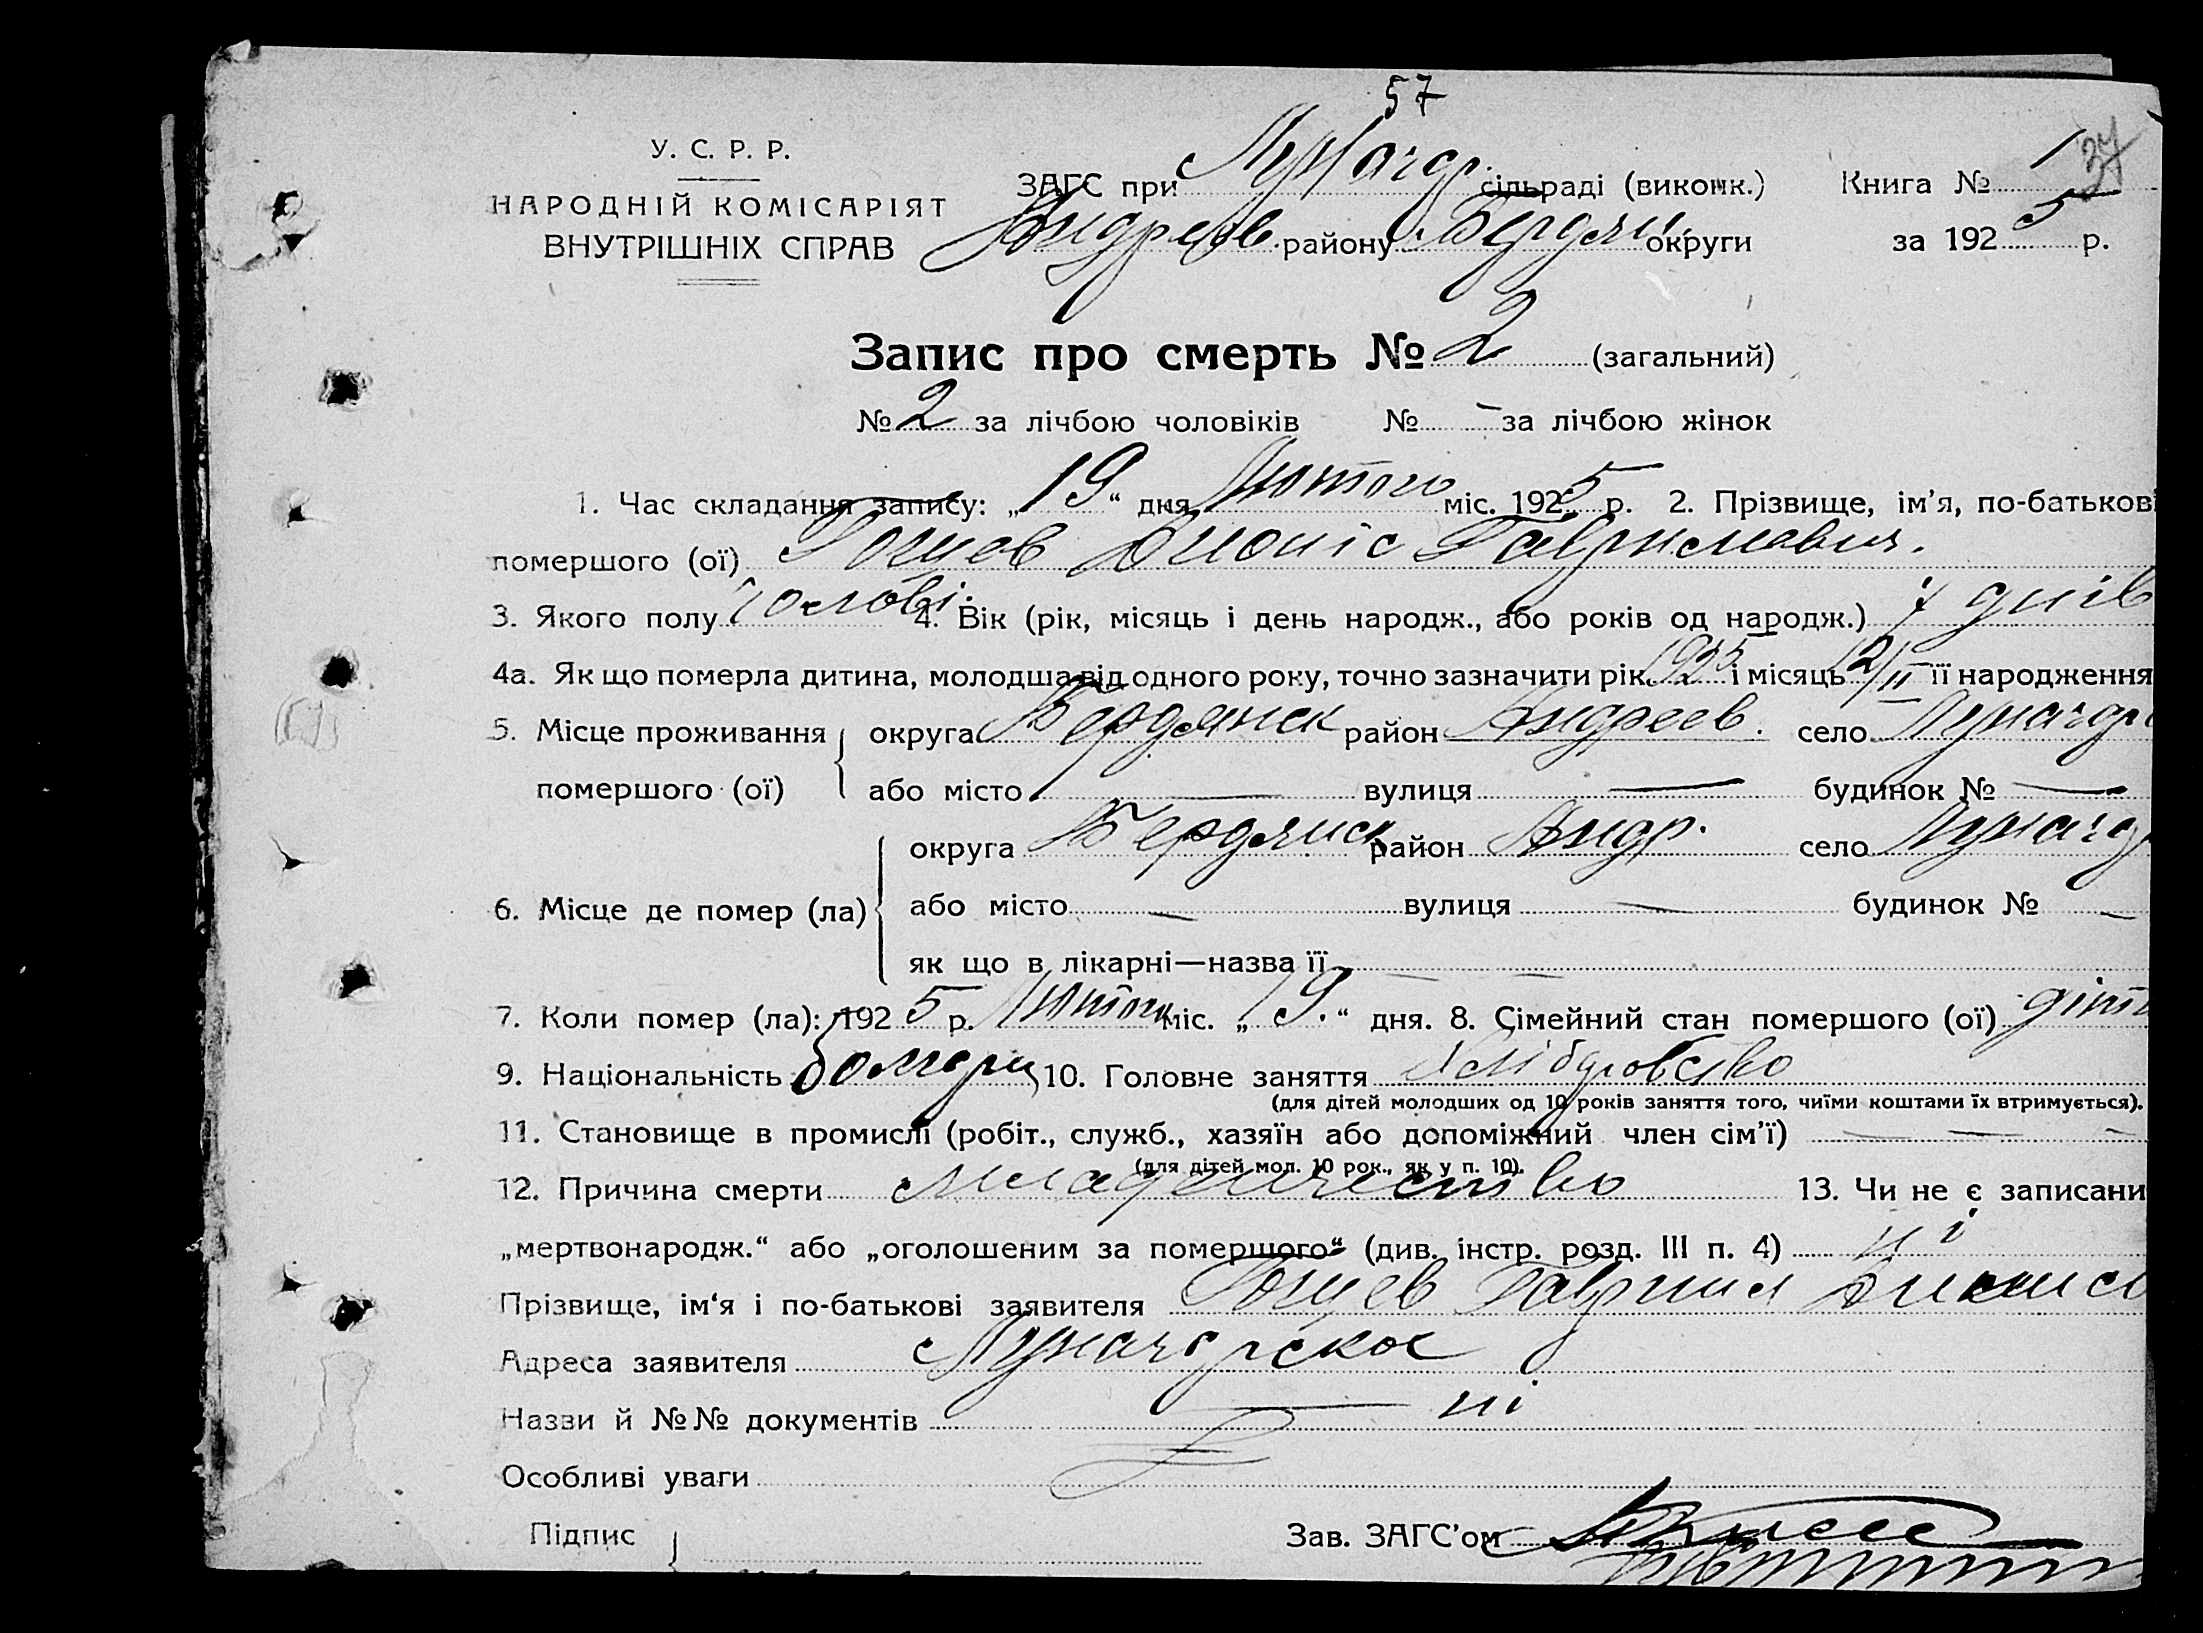 57
У. С. Р. Р.
НАРОДНІЙ КОМІСАРІЯТ
ВНУТРІШНІХ СПРАВ
ЗАГС при Луначар. сільраді (виконк.) Книга № 1 37
Андреев. району Бердян. округи за 192 5 р.
Запис про смерть № 2 (загальний)
№ 2 за лічбою чоловіків № – за лічбою жінок
1. Час складання запису: „ 19 “ дня Лютого міс. 192 5 р. 2. Прізвище, ім'я, по-батькові
помершого (ої) Дионіс Гаврилович.
3. Якого полу чолові. 4. Вік (рік, місяць і день народж., або років од народж.) 7 днів
4а. Як що померла дитина, молодша від одного року, точно зазначити рік 1925 і місяць 12/II її народження
5. Місце проживання округа Бердянск район Андреев. село Луначар
помершого (ої) або місто — вулиця — будинок № —
6. Місце де помер (ла) округа Бердянск район Андр. село Луначар
або місто — вулиця — будинок № —
як що в лікарні—назва її — —
7. Коли помер (ла): 192 5 р. Лютого міс. „ 19. “ дня. 8. Сімейний стан помершого (ої) діти
9. Національність болгарц 10. Головне заняття хліборобство
(для дітей молодших од 10 років заняття того, чиїми коштами їх втримується).
11. Становище в промислі (робіт., служб., хазяїн або допоміжний член сім'ї) — — —
(для дітей мол. 10 рок., як у п. 10).
12. Причина смерти младенчество 13. Чи не є записани
„мертвонародж.“ або „оголошеним за померщого“ (див. інстр. розд. III п. 4) ні
Прізвище, ім'я і по-батькові заявителя Гаврил Дионис
Адреса заявителя Луначарское
Назви й №№ документів — ні
Особливі уваги
Підпис Зав. ЗАГС'ом